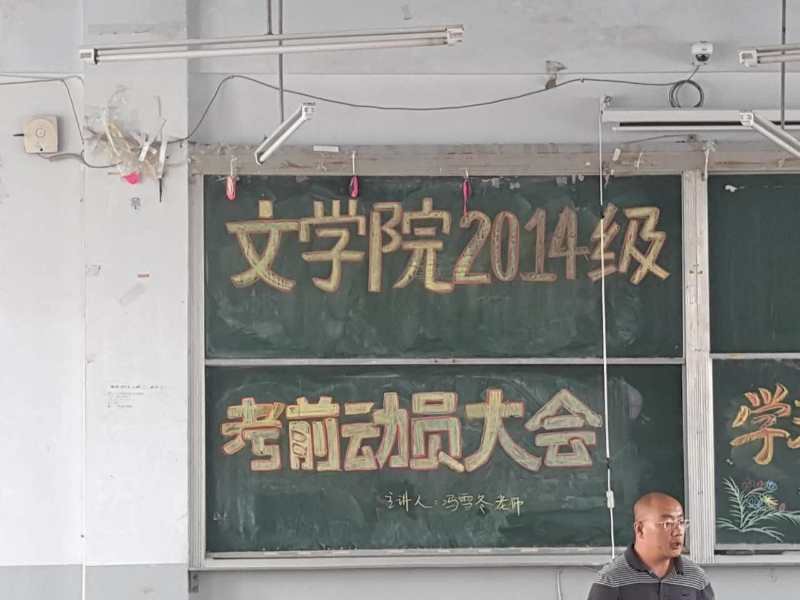 文学院2014级
考前动员大会
主讲人：冯雪冬老师
学